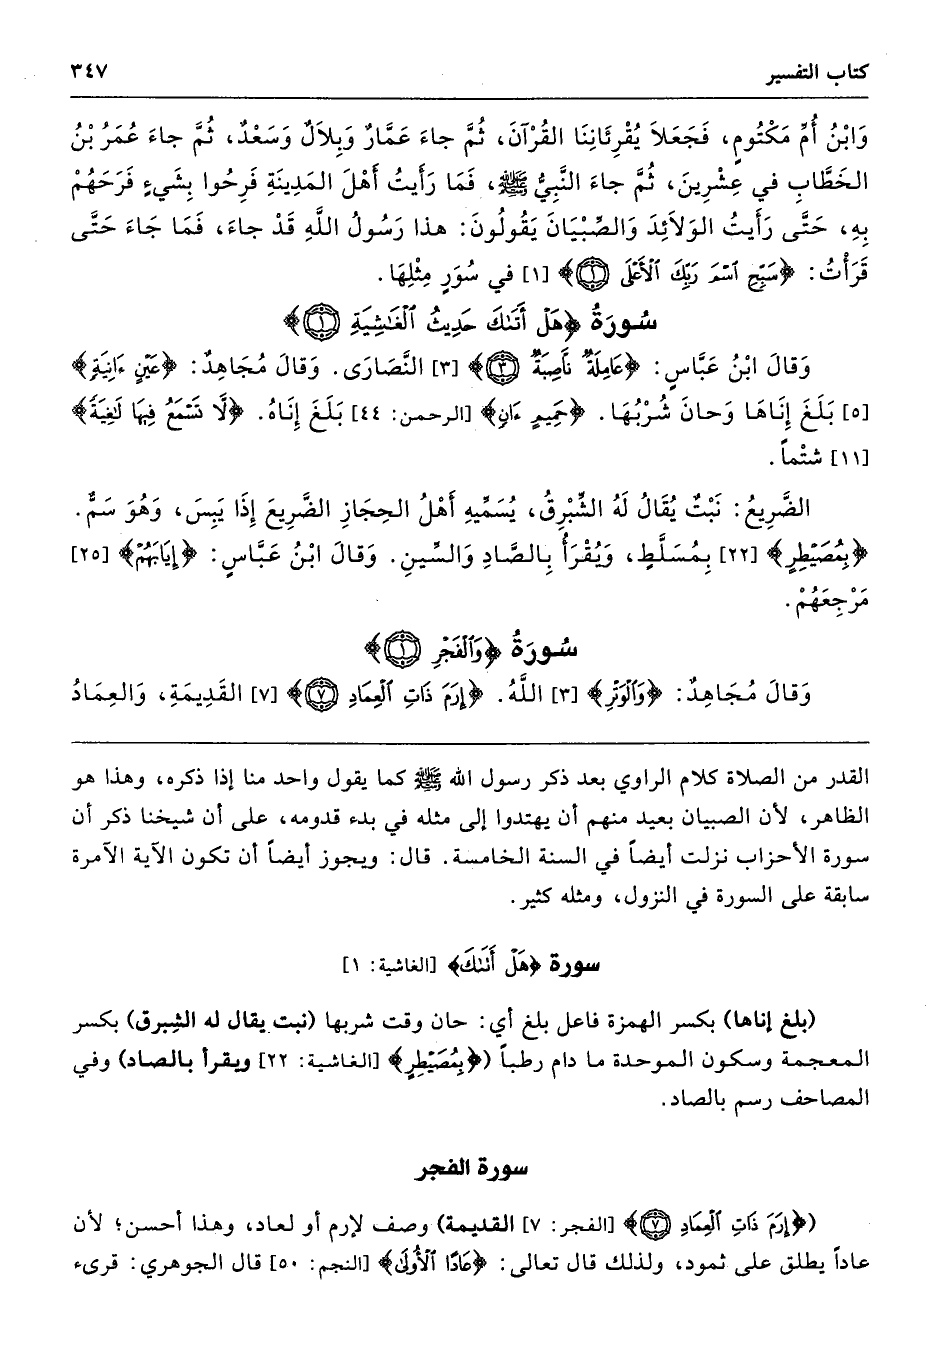 كتاب التفسير ٣٤٧
وَابْنُ أُمِّ مَكْتُومٍ، فَجَعَلاَ يُقْرِئَانِنَا القُرْآنَ، ثُمَّ جاءَ عَمَّارٌ وَبِلاَلٌ وَسَعْدٌ، ثُمَّ جاءَ عُمَرُ بْنُ
الخَطَّابِ في عِشْرِينَ، ثُمَّ جاءَ النَّبِيُّ ﷺ، فَمَا رَأَيتُ أَهْلَ المَدِينَةِ فَرِحُوا بِشَيءٍ فَرَحَهُمْ
بِهِ، حَتَّى رَأَيتُ الوَلاَئِدَ وَالصِّبْيَانَ يَقُولُونَ: هذا رَسُولُ اللَّهِ قَدْ جاءَ، فَمَا جَاءَ حَتَّى
قَرَأْتُ: ﴿سَبِّحِ ٱسْمَ رَبِّكَ ٱلْأَعْلَى ۝١﴾ [١] في سُوَرٍ مِثْلِهَا.
سُورَةُ ﴿هَلْ أَتَىٰكَ حَدِيثُ ٱلْغَٰشِيَةِ ۝١﴾
وَقالَ ابْنُ عَبَّاسٍ: ﴿عَامِلَةٌ نَّاصِبَةٌ ۝٣﴾ [٣] النَّصَارَى. وَقالَ مُجَاهِدٌ: ﴿عَيْنٍ ءَانِيَةٍ﴾
[٥] بَلَغَ إِنَاهَا وَحانَ شُرْبُهَا. ﴿حَمِيمٍ ءَانٍ﴾ [الرحمن: ٤٤] بَلَغَ إِنَاهُ. ﴿لَّا تَسْمَعُ فِيهَا لَٰغِيَةً﴾
[١١] شتْماً.
الضَّرِيعُ: نَبْتٌ يُقَالُ لَهُ الشِّبْرِقُ، يُسَمِّيهِ أَهْلُ الحِجَازِ الضَّرِيعَ إِذَا يَبِسَ، وَهُوَ سَمٌّ.
﴿بِمُصَيْطِرٍ﴾ [٢٢] بِمُسَلَّطٍ، وَيُقْرَأُ بِالصَّادِ وَالسِّينِ. وَقالَ ابْنُ عَبَّاسٍ: ﴿إِيَابَهُمْ﴾ [٢٥]
مَرْجِعَهُمْ.
سُورَةُ ﴿وَٱلْفَجْرِ ۝١﴾
وَقالَ مُجَاهِدٌ: ﴿وَٱلْوَتْرِ﴾ [٣] اللَّهُ. ﴿إِرَمَ ذَاتِ ٱلْعِمَادِ ۝٧﴾ [٧] القَدِيمَةِ، وَالعِمَادُ
القدر من الصلاة كلام الراوي بعد ذكر رسول الله ﷺ كما يقول واحد منا إذا ذكره، وهذا هو
الظاهر، لأن الصبيان بعيد منهم أن يهتدوا إلى مثله في بدء قدومه، على أن شيخنا ذكر أن
سورة الأحزاب نزلت أيضاً في السنة الخامسة. قال: ويجوز أيضاً أن تكون الآية الآمرة
سابقة على السورة في النزول، ومثله كثير.
سورة ﴿هَلْ أَتَىٰكَ﴾ [الغاشية: ١]
(بلغ إناها) بكسر الهمزة فاعل بلغ أي: حان وقت شربها (نبت يقال له الشِبرق) بكسر
المعجمة وسكون الموحدة ما دام رطباً (﴿بِمُصَيْطِرٍ﴾ [الغاشية: ٢٢] ويقرأ بالصاد) وفي
المصاحف رسم بالصاد.
سورة الفجر
(﴿إِرَمَ ذَاتِ ٱلْعِمَادِ ۝٧﴾ [الفجر: ٧] القديمة) وصف لإرم أو لعاد، وهذا أحسن؛ لأن
عاداً يطلق على ثمود، ولذلك قال تعالى: ﴿عَادًا ٱلْأُولَىٰ﴾ [النجم: ٥٠] قال الجوهري: قرىء